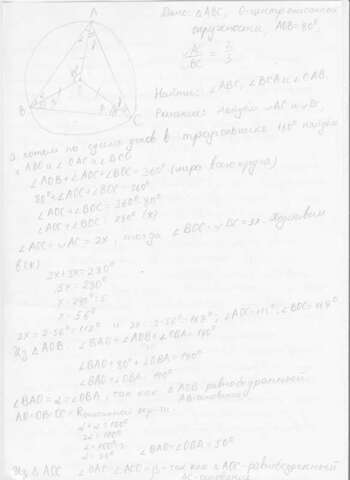 A
B
C
Дано: ∠ABC, O-центр описанной
окружности, AOB=80°,
◡AC/◡BC = 2/3
Найти: ∠ABC, ∠BCA и ∠OAB.
Решение: Найдем ◡AC и ◡BC,
а потом по сумме углов в треугольнике 180° найдем
∠AOB+∠AOC+∠BOC=360° (мера всего круга)
80°+∠AOC+∠BOC=360°
∠AOC+∠BOC=360°-80°
∠AOC+∠BOC=280° (*)
∠AOC=◡AC=2x, тогда ∠BOC=◡BC=3x.
в (*)
2x+3x=280°
5x=280°
x=280°:5
x=56°
2x=2·56°=112° и 3x=3·56°=168°; ∠AOC=112°, ∠BOC=168°
Из △AOB ∠BAO+∠AOB+∠OBA=180°
∠BAO+80°+∠OBA=180°
∠BAO+∠OBA=100°
∠BAO=α=∠OBA, так как △AOB-равнобедренный
AO=OB=OC=R AB-основание
α+α=100°
2α=100°
α=100°:2
α=50° ∠BAO=∠OBA=50°
Из △AOC ∠OAC=∠ACO=β-так как △AOC-равнобедренный
AC-основание